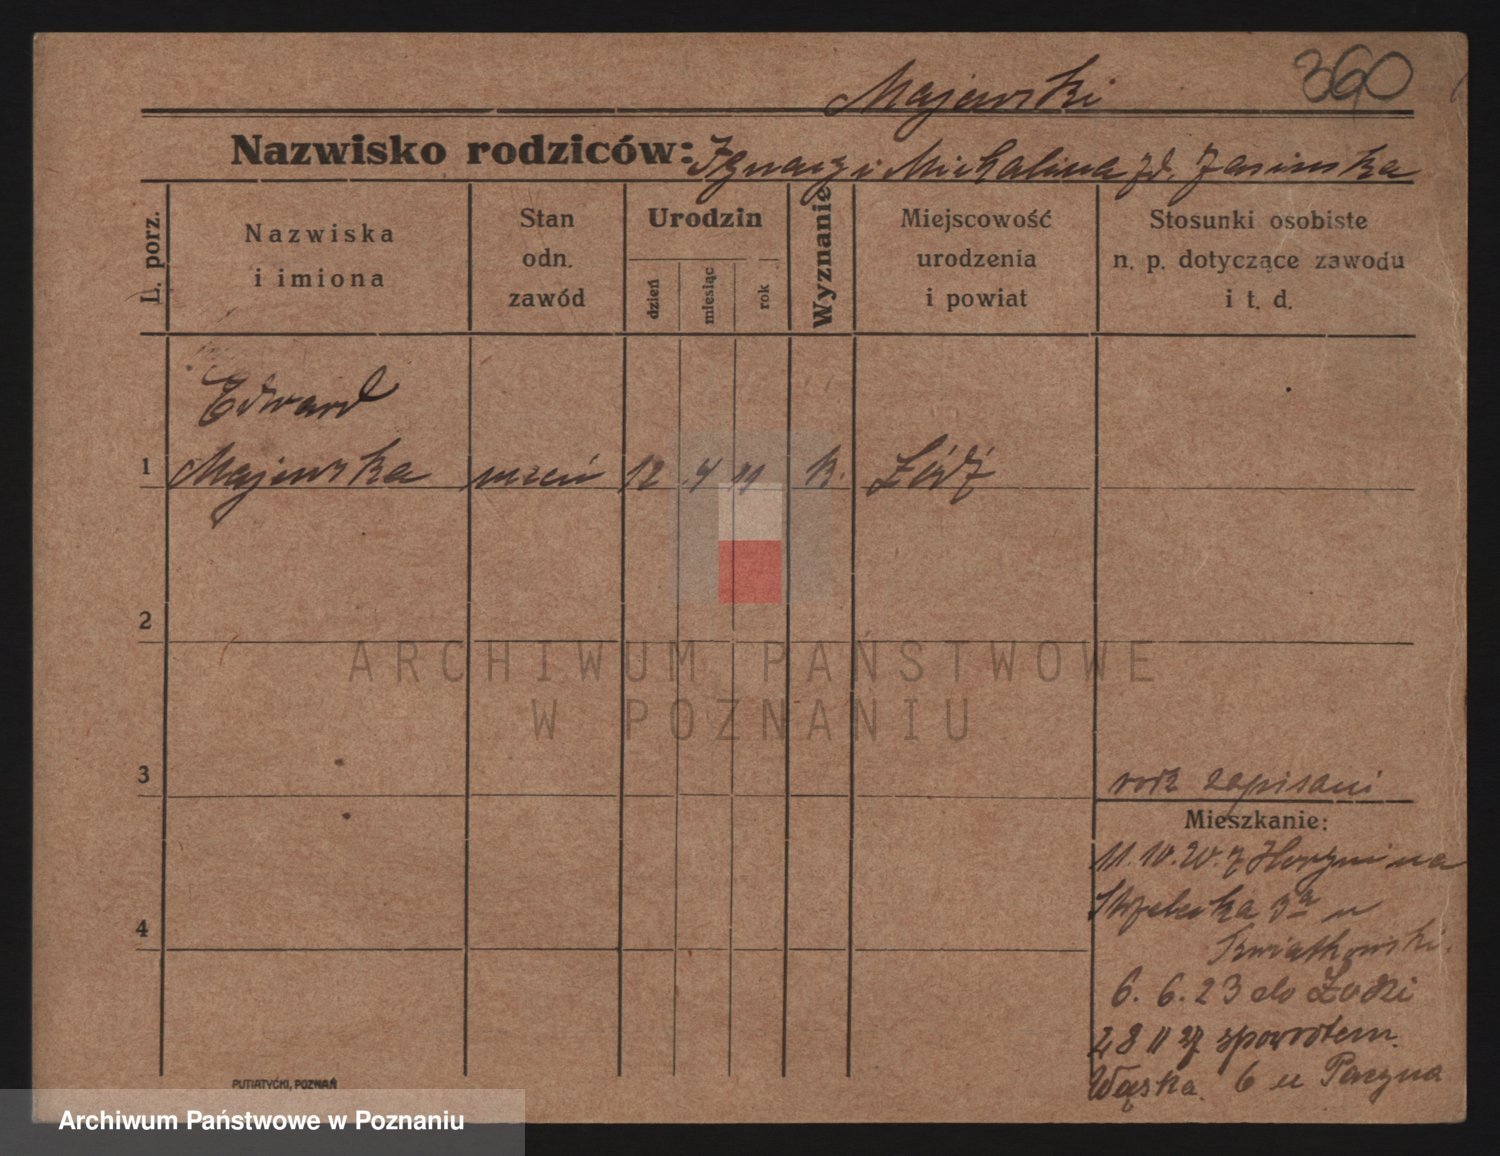 360
Majewski
Nazwisko rodziców: Ignacy i Michalina zd. Jasinska
L. porz.
Nazwiska
i imiona
Stan
odn.
zawód
Urodzin
dzień
miesiąc
rok
Wyznanie
Miejscowość
urodzenia
i powiat
Stosunki osobiste
n. p. dotyczące zawodu
i t. d.
Edward
1 Majewska uczeń 12 4 11 k. Łódź
2
3
4
rodz zapisani
Mieszkanie:
11.10.20. z
Strzelecka 3a u
Kwiatkowski.
6. 6. 23 do Łodzi
28 11 27 spowrotem.
Wąska. 6 u
PUTIATYCKI, POZNAŃ
ARCHIWUM PAŃSTWOWE
W POZNANIU
Archiwum Państwowe w Poznaniu